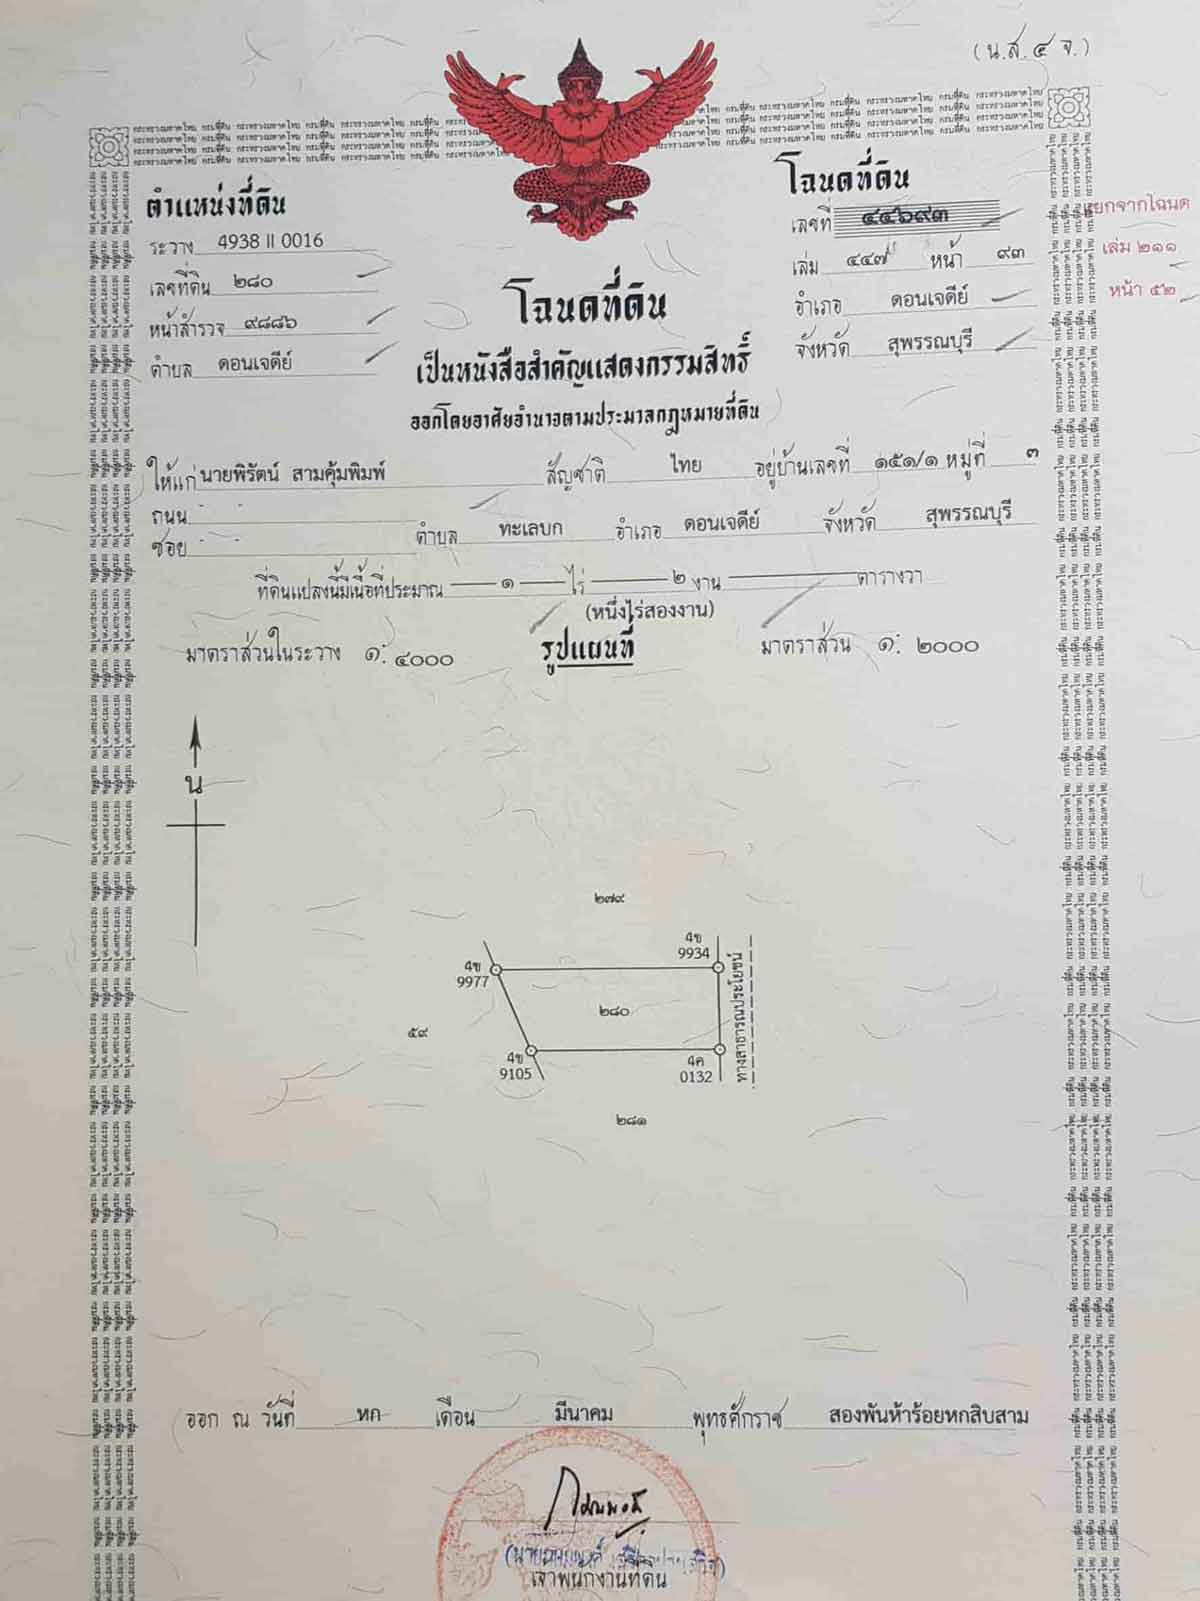 (น.ส.๔ จ.)
ตำแหน่งที่ดิน
ระวาง 4938 II 0016
เลขที่ดิน ๒๘๐
หน้าสำรวจ ๙๘๘๖
ตำบล ดอนเจดีย์
โฉนดที่ดิน
เลขที่ ๔๔๖๙๓
เล่ม ๔๔๗ หน้า ๙๓
อำเภอ ดอนเจดีย์
จังหวัด สุพรรณบุรี
แยกจากโฉนด
เล่ม ๒๑๑
หน้า ๕๒
โฉนดที่ดิน
เป็นหนังสือสำคัญแสดงกรรมสิทธิ์
ออกโดยอาศัยอำนาจตามประมวลกฎหมายที่ดิน
ให้แก่ นายพิรัตน์ สามคุ้มพิมพ์ สัญชาติ ไทย อยู่บ้านเลขที่ ๑๕๑/๑ หมู่ที่ ๓
ถนน -
ซอย - ตำบล ทะเลบก อำเภอ ดอนเจดีย์ จังหวัด สุพรรณบุรี
ที่ดินแปลงนี้มีเนื้อที่ประมาณ ๑ ไร่ ๒ งาน ตารางวา
(หนึ่งไร่สองงาน)
มาตราส่วนในระวาง ๑:๔๐๐๐ รูปแผนที่ มาตราส่วน ๑:๒๐๐๐
น
๒๗๙
4ข
9977
4ข
9934
๒๘๐
ทางสาธารณประโยชน์
๕๙
4ข
9105
4ค
0132
๒๘๑
ออก ณ วันที่ หก เดือน มีนาคม พุทธศักราช สองพันห้าร้อยหกสิบสาม
เจ้าพนักงานที่ดิน